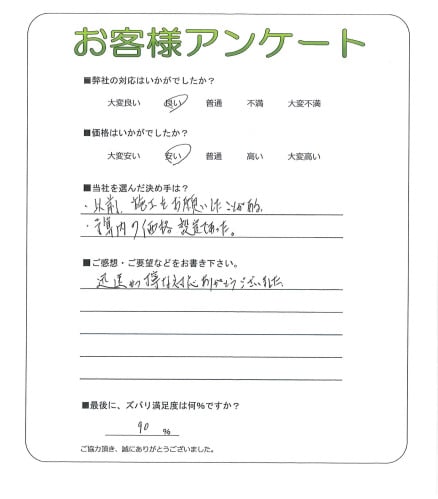 お客様アンケート
■弊社の対応はいかがでしたか？
大変良い 良い 普通 不満 大変不満
■価格はいかがでしたか？
大変安い 安い 普通 高い 大変高い
■当社を選んだ決め手は？
・以前、施工をお願いしたことがある。
・予算内の価格設定であった。
■ご感想・ご要望などをお書き下さい。
迅速かつ丁寧な対応ありがとうございました。
■最後に、ズバリ満足度は何％ですか？
90 ％
ご協力頂き、誠にありがとうございました。